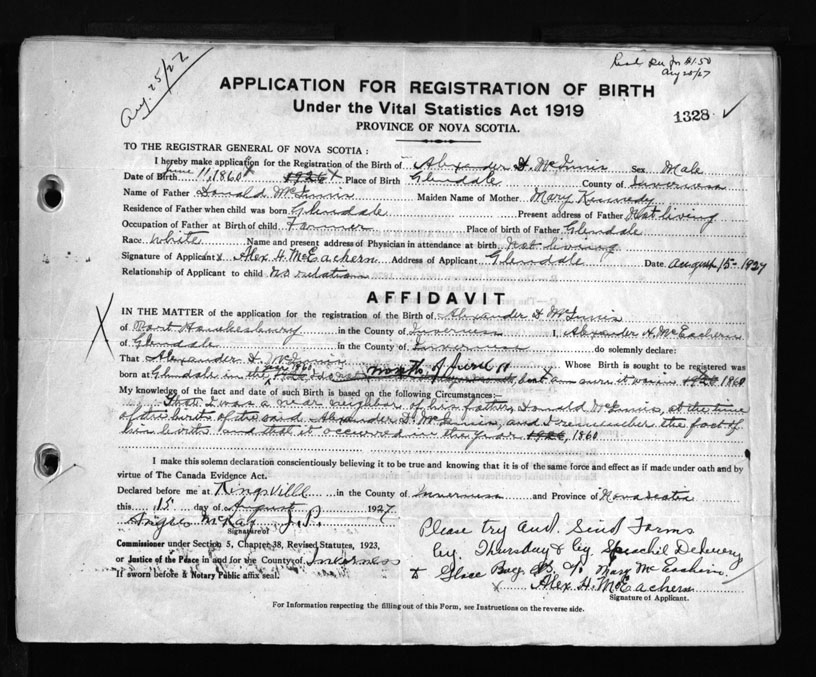 Aug. 25/27
Aug 25/27
APPLICATION FOR REGISTRATION OF BIRTH
Under the Vital Statistics Act 1919
1328 ✓
PROVINCE OF NOVA SCOTIA.
TO THE REGISTRAR GENERAL OF NOVA SCOTIA :
I hereby make application for the Registration of the Birth of Alexander D. McInnis Sex Male
Date of Birth June 11, 1860 1926 Place of Birth Glendale County of Inverness
Name of Father Donald McInnis Maiden Name of Mother Mary Kennedy
Residence of Father when child was born Glendale Present address of Father Not living
Occupation of Father at Birth of child Farmer Place of birth of Father Glendale
Race White Name and present address of Physician in attendance at birth Not living
Signature of Applicant x Alex H. McEachern Address of Applicant Glendale Date August 15 - 1927
Relationship of Applicant to child no relation
AFFIDAVIT
IN THE MATTER of the application for the registration of the Birth of Alexander D McInnis
of Port Hawkesbury in the County of Inverness I, Alexander H. McEachern
of Glendale in the County of Inverness do solemnly declare:
That Alexander D. McInnis Whose Birth is sought to be registered was
born at Glendale in the year 1860 month of June 11 but am sure it was in 1926 1860
My knowledge of the fact and date of such Birth is based on the following Circumstances:—
That I was a near neighbor of his father, Donald McInnis, at the time
of the birth of the said Alexander D. McInnis, and I remember the fact of
his birth and that it occurred in the year 1926, 1860
I make this solemn declaration conscientiously believing it to be true and knowing that it is of the same force and effect as if made under oath and by
virtue of The Canada Evidence Act.
Declared before me at Kingsville in the County of Inverness and Province of Nova Scotia
this 15 day of August 1927
Angus McKay J. P.
Signature of
Commissioner under Section 5, Chapter 38, Revised Statutes, 1923,
or Justice of the Peace in and for the County of Inverness
If sworn before a Notary Public affix seal.
Please try and Sind Forms
by Thursday by Speechil Delivery
to Glace Bay C/o Mary McEachern
x Alex H. McEachern
Signature of Applicant.
For Information respecting the filling out of this Form, see Instructions on the reverse side.